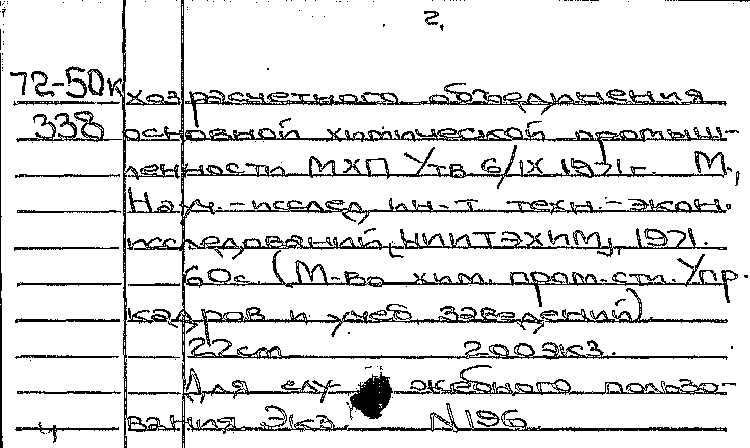 2.
72-50к хозрасчетного объединения
338 основной химической промыш-
ленности МХП Утв 6/IX 1971г. М.,
Науч.-исслед. ин-т техн.-экон.
исследований, НИИТЭХИМ, 1971.
60с. (М-во хим. пром.сти. Упр.
кадров и учеб. заведений)
22см 200экз.
Для служебного пользо-
4 вания. Экз. N196